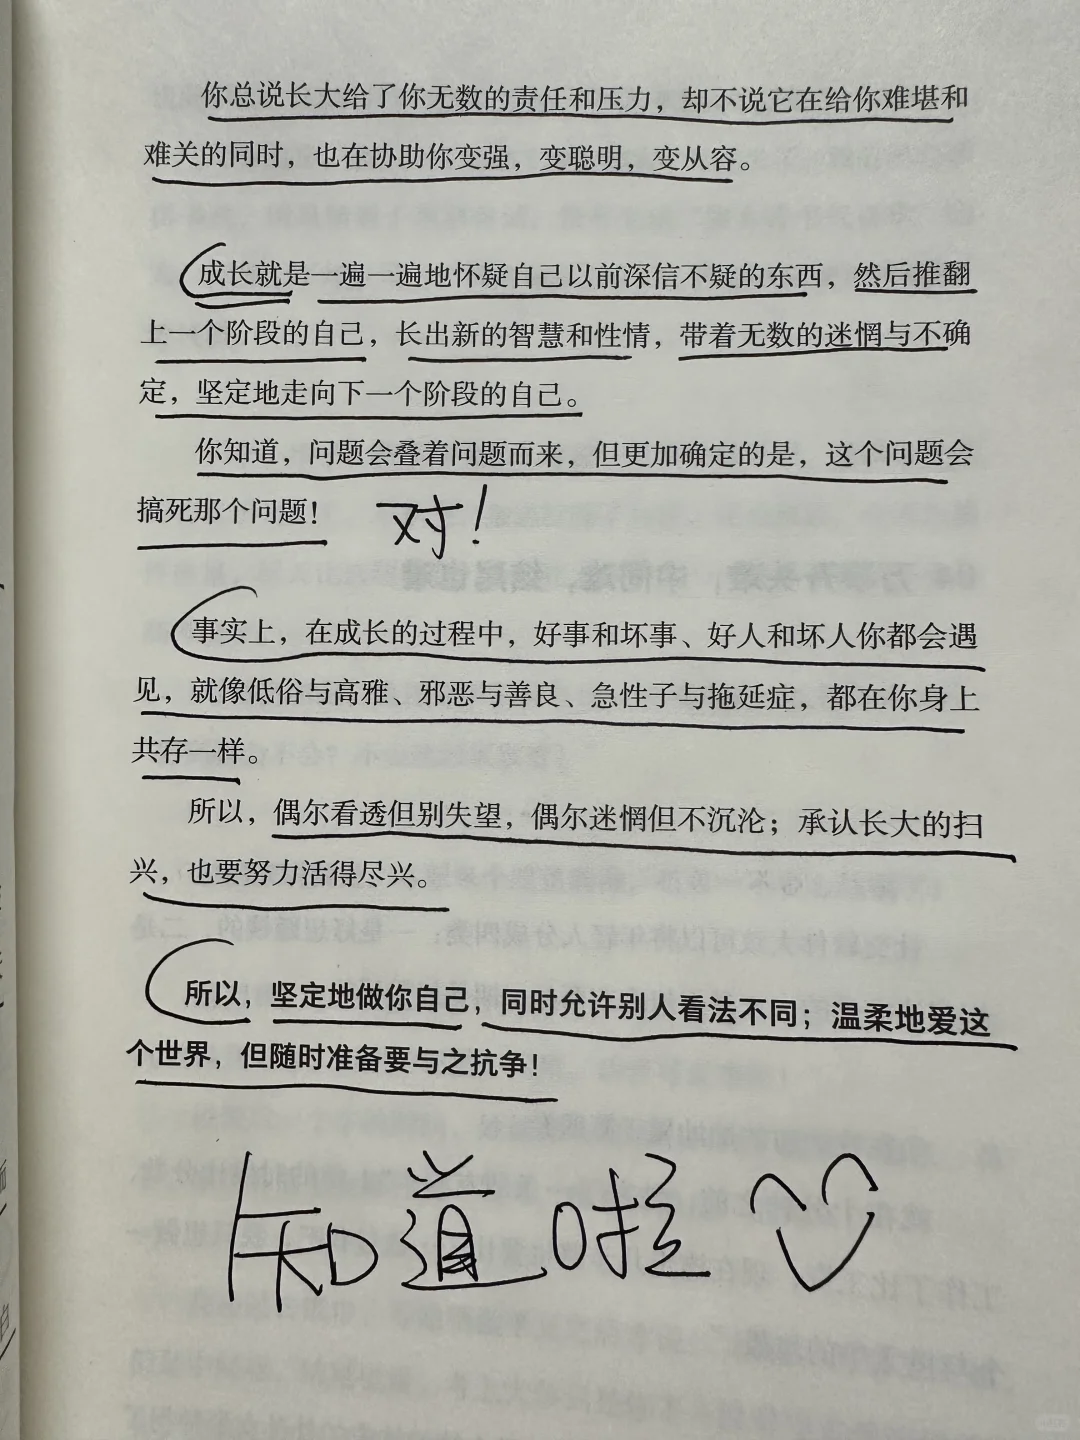 你总说长大给了你无数的责任和压力，却不说它在给你难堪和
难关的同时，也在协助你变强，变聪明，变从容。
成长就是一遍一遍地怀疑自己以前深信不疑的东西，然后推翻
上一个阶段的自己，长出新的智慧和性情，带着无数的迷惘与不确
定，坚定地走向下一个阶段的自己。
你知道，问题会叠着问题而来，但更加确定的是，这个问题会
搞死那个问题！
对！
事实上，在成长的过程中，好事和坏事、好人和坏人你都会遇
见，就像低俗与高雅、邪恶与善良、急性子与拖延症，都在你身上
共存一样。
所以，偶尔看透但别失望，偶尔迷惘但不沉沦；承认长大的扫
兴，也要努力活得尽兴。
所以，坚定地做你自己，同时允许别人看法不同；温柔地爱这
个世界，但随时准备要与之抗争！
知道啦